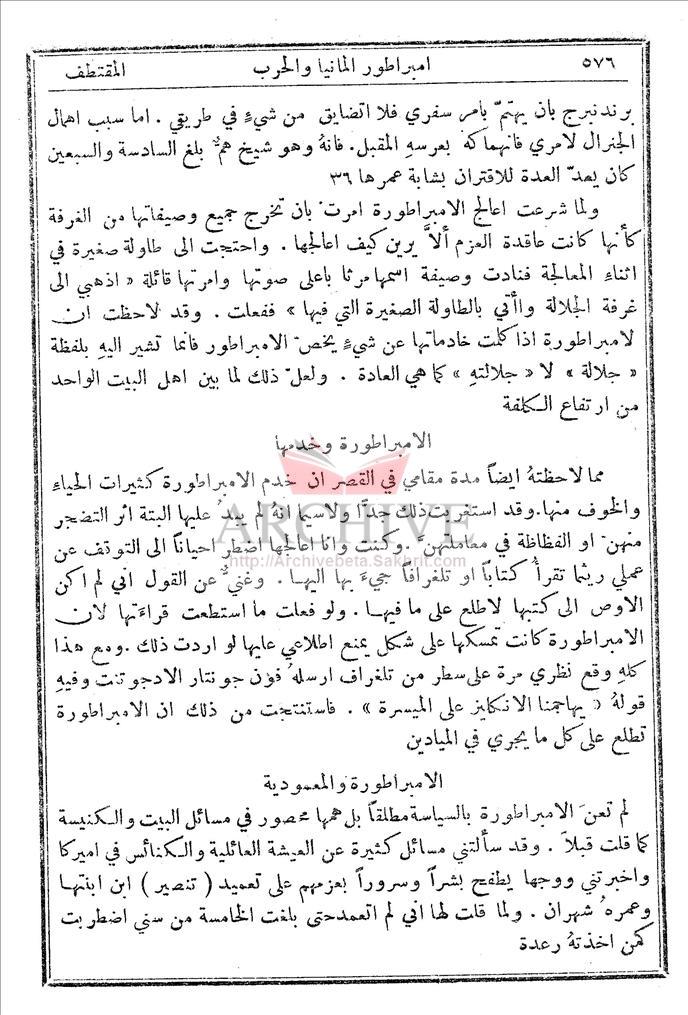 ٥٧٦ امبراطور المانيا والحرب المقتطف
برندنبرج بان يهتمّ بامر سفري فلا اتضايق من شيءٍ في طريقي . اما سبب اهمال
الجنرال لامري فانهماكه بعرسهِ المقبل . فانهُ وهو شيخ همٌّ بلغ السادسة والسبعين
كان يعدّ العدة للاقتران بشابة عمرها ٣٦
ولما شرعت اعالج الامبراطورة امرت بان تخرج جميع وصيفاتها من الغرفة
كأنها كانت عاقدة العزم ألاَّ يرين كيف اعالجها . واحتجت الى طاولة صغيرة في
اثناءِ المعالجة فنادت وصيفة اسمها مرثا باعلى صوتها وامرتها قائلة « اذهبي الى
غرفة الجلالة وأتي بالطاولة الصغيرة التي فيها » ففعلت . وقد لاحظت ان
لامبراطورة اذا كلمت خادماتها عن شيءٍ يخصّ الامبراطور فانما تشير اليهِ بلفظة
« جلالة » لا « جلالتهِ » كما هي العادة . ولعلّ ذلك لما بين اهل البيت الواحد
من ارتفاع الكلفة
الامبراطورة وخدمها
مما لاحظتهُ ايضاً مدة مقامي في القصر ان خدم الامبراطورة كثيرات الحياءِ
والخوف منها . وقد استغربت ذلك جدًّا ولاسيما انهُ لم يبدُ عليها البتة اثر التضجر
منهنّ او الفظاظة في معاملتهنَّ . وكنت وانا اعالجها اضطر احياناً الى التوقف عن
عملي ريثما تقرأُ كتاباً او تلغرافاً جيءَ بها اليها . وغنيٌّ عن القول اني لم اكن
الاوص الى كتبها لاطلع على ما فيها . ولو فعلت ما استطعت قراءَتها لان
الامبراطورة كانت تمسكها على شكل يمنع اطلاعي عليها لو اردت ذلك . ومع هذا
كلهِ وقع نظري مرة على سطر من تلغراف ارسلهُ فون جونتار الادجوتنت وفيهِ
قولهُ « يهاجمنا الانكليز على الميسرة » . فاستنتجت من ذلك ان الامبراطورة
تطلع على كل ما يجري في الميادين
الامبراطورة والمعمودية
لم تعنَ الامبراطورة بالسياسة مطلقاً بل همها محصور في مسائل البيت والكنيسة
كما قلت قبلاً . وقد سألتني مسائل كثيرة عن العيشة العائلية والكنائس في اميركا
واخبرتني ووجهها يطفح بشراً وسروراً بعزمهم على تعميد ( تنصير ) ابن ابنتها
وعمرهُ شهران . ولما قلت لها اني لم اتعمد حتى بلغت الخامسة من سني اضطربت
كمن اخذتهُ رعدة
ARCHIVE
http://Archivebeta.Sakhrit.com